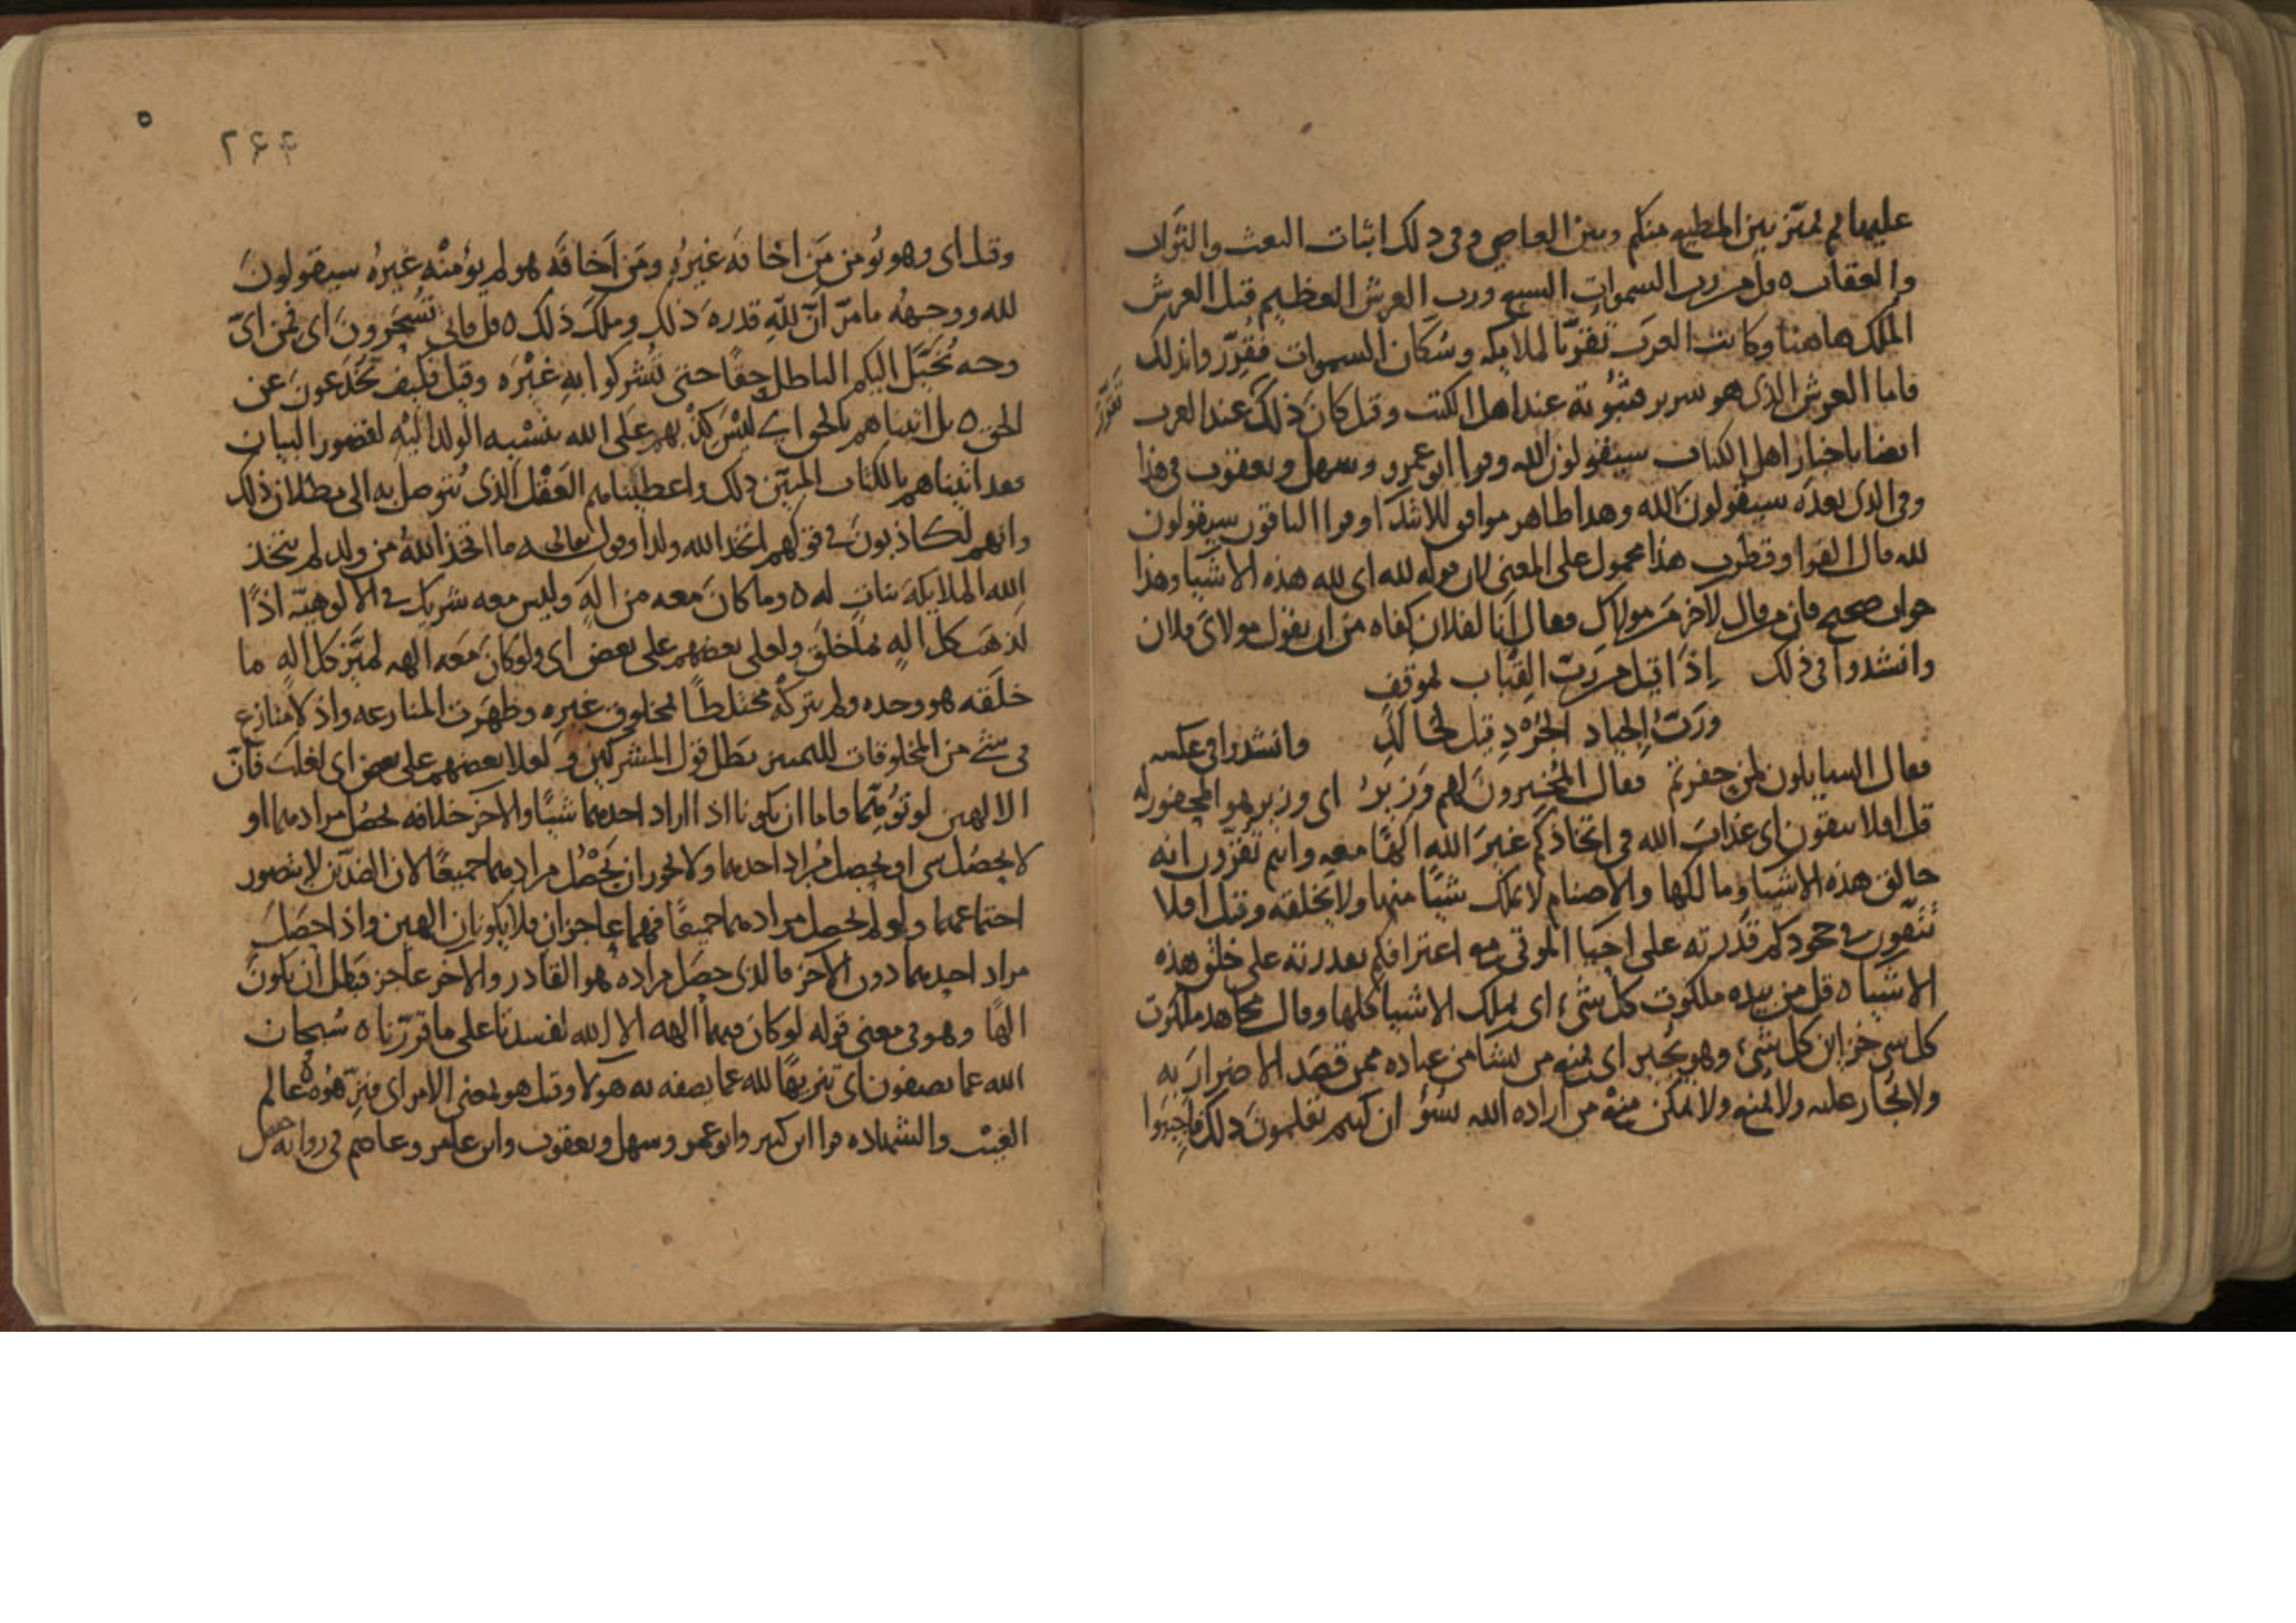 عليها ثم لم تميز بين المطيع منكم وبين العاصي وفي ذلك اثبات البعث والثواب
والعقاب ه قل من رب السموات السبع ورب العرش العظيم قيل العرش
الملك هاهنا وكانت العرب تقر بالملايكه وسكان السموات فقرر وا بذلك
فاما العرش الذي هو سرير فثبوته عند اهل الكتب وقيل كان ذلك عند العرب
تقرر
ايضا باخبار اهل الكتاب سيقولون لله وقرا ابو عمرو وسهل ويعقوب في هذا
وفي الذي بعده سيقولون الله وهذا ظاهر موافق للابتدآ وقرا الباقون سيقولون
لله قال الفرا وقطرب هذا محمول على المعنى لان قوله لله اي لله هذه الاشيا وهذا
جواب صحيح فان من قال لآخر من مولاك فقال انا لفلان كفاه من ان يقول مولاي فلان
وانشدوا في ذلك اذا قيل من رب القباب لموقف
ورب الجياد الجرد قيل لخالد وانشدوا في عكسه
فقال السايلون لمن حفرتم فقال المخبرون لهم وزير اي وزير هو المحفور له
قل افلا تتقون اي عذاب الله في اتخاذكم غير الله الها معه وانتم تقرون انه
خالق هذه الاشيا ومالكها والاصنام لا تملك شيا منها ولا تخلقه وقيل افلا
تتقون في جحودكم قدرته على احيا الموتى مع اعترافكم بقدرته على خلق هذه
الاشيا ه قل من بيده ملكوت كل شيء اي يملك الاشيا كلها وقال مجاهد ملكوت
كل شي خزاين كل شيء وهو يجير اي يمنع من يشا من عباده ممن قصد الاضرار به
ولا يجار عليه ولا يمنع ولا يمكن منع من اراده الله بسوء ان كنتم تعلمون ذلك فاجيبوا
٥
٢٤٤
وقيل اي وهو يؤمن من اخافه غيره ومن اخافه هو لم يؤمنه غيره سيقولون
لله ووجهه ما مر ان لله قدره ذلك وملك ذلك ه قل فاني تسحرون اي فمن اي
وجه يخيل اليكم الباطل حقا حتى تشركوا به غيره وقيل فكيف تخدعون عن
الحق ه بل اتيناهم بالحق اي ليس كذبهم على الله بنسبه الولد اليه لقصور البيان
فقد اتيناهم بالكتاب المبين ذلك واعطيناهم العقل الذي يتوصل به الى بطلان ذلك
وانهم لكاذبون في قولهم اتخذ الله ولدا وقوله تعالى ما اتخذ الله من ولد لم يتخذ
الله الملايكه بنات له ه وما كان معه من اله وليس معه شريك في الالوهية اذا
لذهب كل اله بما خلق ولعلى بعضهم على بعض اي ولو كان معه الهه لميز كل اله ما
خلقه هو وحده ولم يتركه مختلطا بمخلوق غيره وظهرت المنازعه واذ لا منازع
في شيء من المخلوقات للتمييز بطل قول المشركين و لعلا بعضهم على بعض اي لغلب فان
الالهين لو توهما فاما ان يكونا اذا اراد احدهما شيا والاخر خلافه يحصل مرادهما او
لا يحصل شي او يحصل مراد احدهما ولا يجوز ان يحصل مرادهما جميعا لان الضدين لا يتصور
اجتماعهما ولو لم يحصل مرادهما جميعا فهما عاجزان فلا يكونان الهين واذا حصل
مراد احدهما دون الاخر فالذي حصل مراده هو القادر والآخر عاجز فبطل ان يكون
الها وهو في معنى قوله لو كان فيهما الهه الا الله لفسدتا على ما قررنا ه سبحان
الله عما يصفون اي تنزيها لله عما يصفه به هولا وقيل هو بمعنى الامر اي فنزهوه عالم
الغيب والشهاده قرا ابن كثير وابو عمرو وسهل ويعقوب وابن عامر وعاصم في روايه حفص